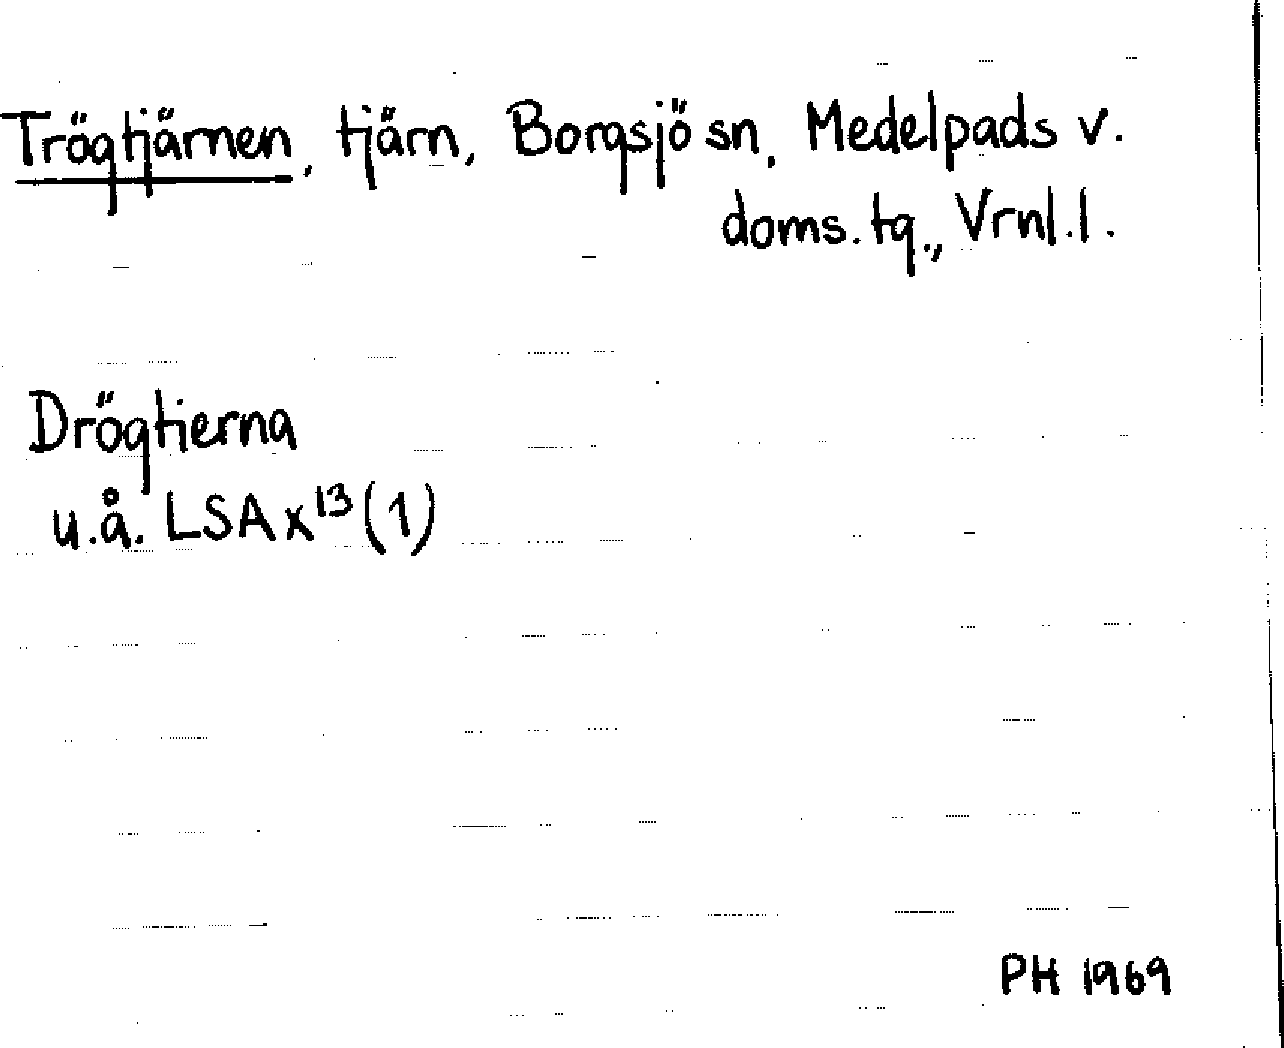 Trögtjärnen, tjärn, Borgsjö sn, Medelpads v.
doms.tg., Vrnl.l.
Drögtierna
u.å. LSA x¹³(1)
PH 1969